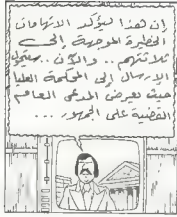 إن هذا ليؤكد الاتهامات
الخطيرة الموجهة إلى
ثلاثتهم .. والآن .. سننتقل
الإرسال إلى المحكمة العليا
حيث يعرض المدعي العام
القضية على الجمهور ...